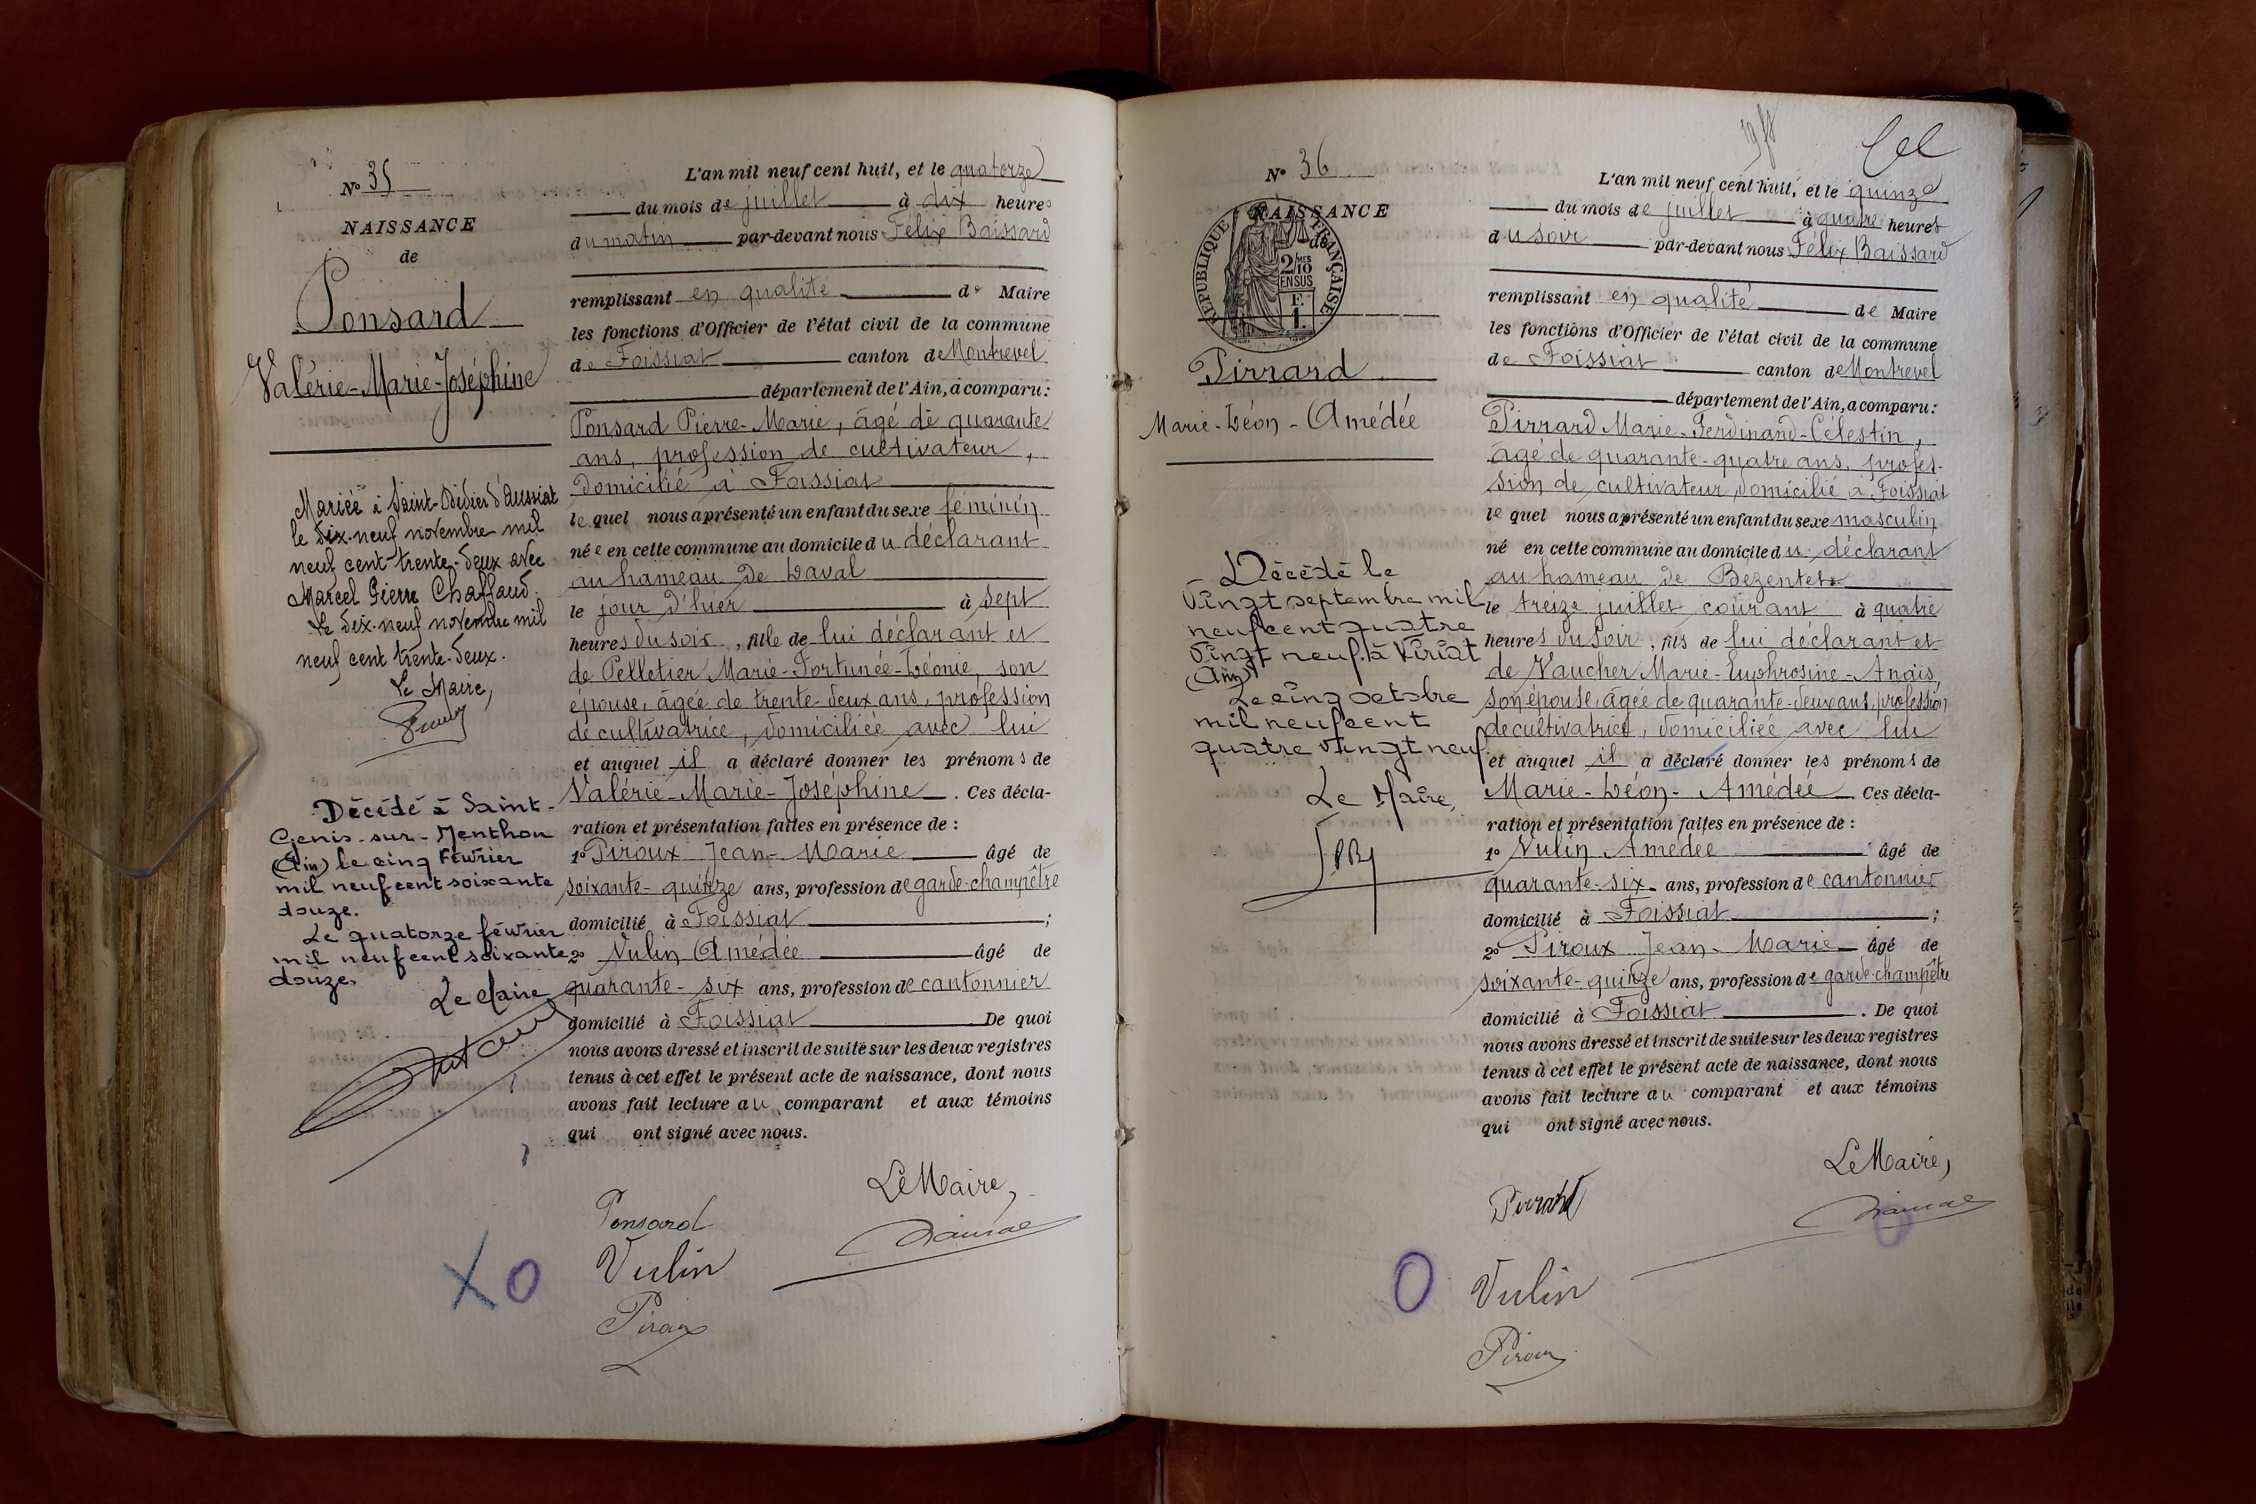 N° 35
NAISSANCE
de
Ponsard
Valérie-Marie-Joséphine
Mariée à Saint-Didier d'Aussiat
le dix-neuf novembre mil
neuf cent trente-deux avec
Marcel Pierre Chaffaud.
Le dix-neuf novembre mil
neuf cent trente-deux.
Le Maire,
Décédé à Saint-
Genis-sur-Menthon
(Ain) le cinq Février
mil neuf cent soixante
douze.
Le quatorze février
mil neuf cent soixante
douze.
Le Maire
L'an mil neuf cent huit, et le quatorze
du mois de juillet à dix heures
du matin par-devant nous Félix Baissard
remplissant en qualité de Maire
les fonctions d'Officier de l'état civil de la commune
de Foissiat canton de Montrevel
département de l'Ain, a comparu :
Ponsard Pierre-Marie, âgé de quarante
ans, profession de cultivateur,
domicilié à Foissiat
lequel nous a présenté un enfant du sexe féminin
née en cette commune au domicile du déclarant
au hameau de Laval
le jour d'hier à sept
heures du soir, fille de lui déclarant et
de Pelletier Marie-Fortunée-Léonie, son
épouse, âgée de trente-deux ans, profession
de cultivatrice, domiciliée avec lui
et auquel il a déclaré donner les prénoms de
Valérie-Marie-Joséphine. Ces décla-
ration et présentation faites en présence de :
1° Piroux Jean-Marie âgé de
soixante-quinze ans, profession de garde-champêtre
domicilié à Foissiat ;
2° Vulin Amédée âgé de
quarante-six ans, profession de cantonnier
domicilié à Foissiat De quoi
nous avons dressé et inscrit de suite sur les deux registres
tenus à cet effet le présent acte de naissance, dont nous
avons fait lecture au comparant et aux témoins
qui ont signé avec nous.
Le Maire,
Ponsard
Vulin
Piroux
X O
N° 36
NAISSANCE
de
RÉPUBLIQUE FRANÇAISE
2/10
MES
EN SUS
F.
1.
Pirrard
Marie-Léon-Amédée
Décédé le
vingt septembre mil
neuf cent quatre
vingt neuf à Viriat
(Ain)
Le cinq octobre
mil neuf cent
quatre vingt neuf.
Le Maire,
L'an mil neuf cent huit, et le quinze
du mois de juillet à quatre heures
du soir par-devant nous Félix Baissard
remplissant en qualité de Maire
les fonctions d'Officier de l'état civil de la commune
de Foissiat canton de Montrevel
département de l'Ain, a comparu :
Pirrard Marie-Ferdinand-Célestin,
âgé de quarante-quatre ans, profes-
sion de cultivateur, domicilié à Foissiat
lequel nous a présenté un enfant du sexe masculin
né en cette commune au domicile du déclarant
au hameau de Bezentet
le treize juillet courant à quatre
heures du soir, fils de lui déclarant et
de Vaucher Marie-Euphrosine-Anaïs,
son épouse, âgée de quarante-deux ans, profession
de cultivatrice, domiciliée avec lui
et auquel il a déclaré donner les prénoms de
Marie-Léon-Amédée Ces décla-
ration et présentation faites en présence de :
1° Vulin Amédée âgé de
quarante-six ans, profession de cantonnier
domicilié à Foissiat ;
2° Piroux Jean-Marie âgé de
soixante-quinze ans, profession de garde-champêtre
domicilié à Foissiat. De quoi
nous avons dressé et inscrit de suite sur les deux registres
tenus à cet effet le présent acte de naissance, dont nous
avons fait lecture au comparant et aux témoins
qui ont signé avec nous.
Le Maire,
Pirrard
Vulin
Piroux
O